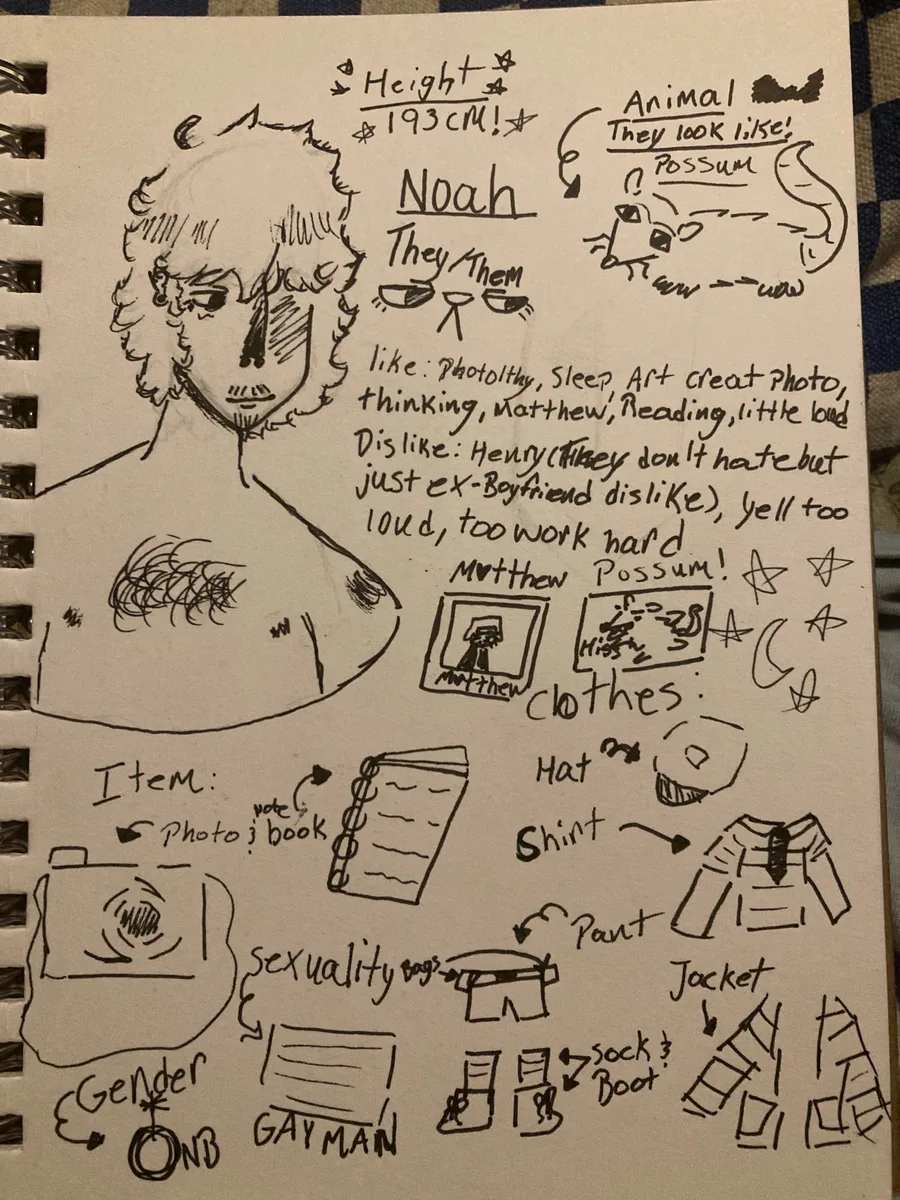 Height
193CM!
Animal
They look like!
Possum
Noah
They/Them
like: Photolthy, Sleep, Art creat Photo,
thinking, Matthew, Reading, little loud
Dislike: Henry (They don't hate but
just ex-Boyfriend dislike), yell too
loud, too work hard
Matthew
Possum!
Matthew
Hiss
Clothes:
Item:
Hat
note
Photo & book
Shirt
Pant
Sexuality
Bags
Jacket
Sock &
Boot
Gender
NB
GAY MAN